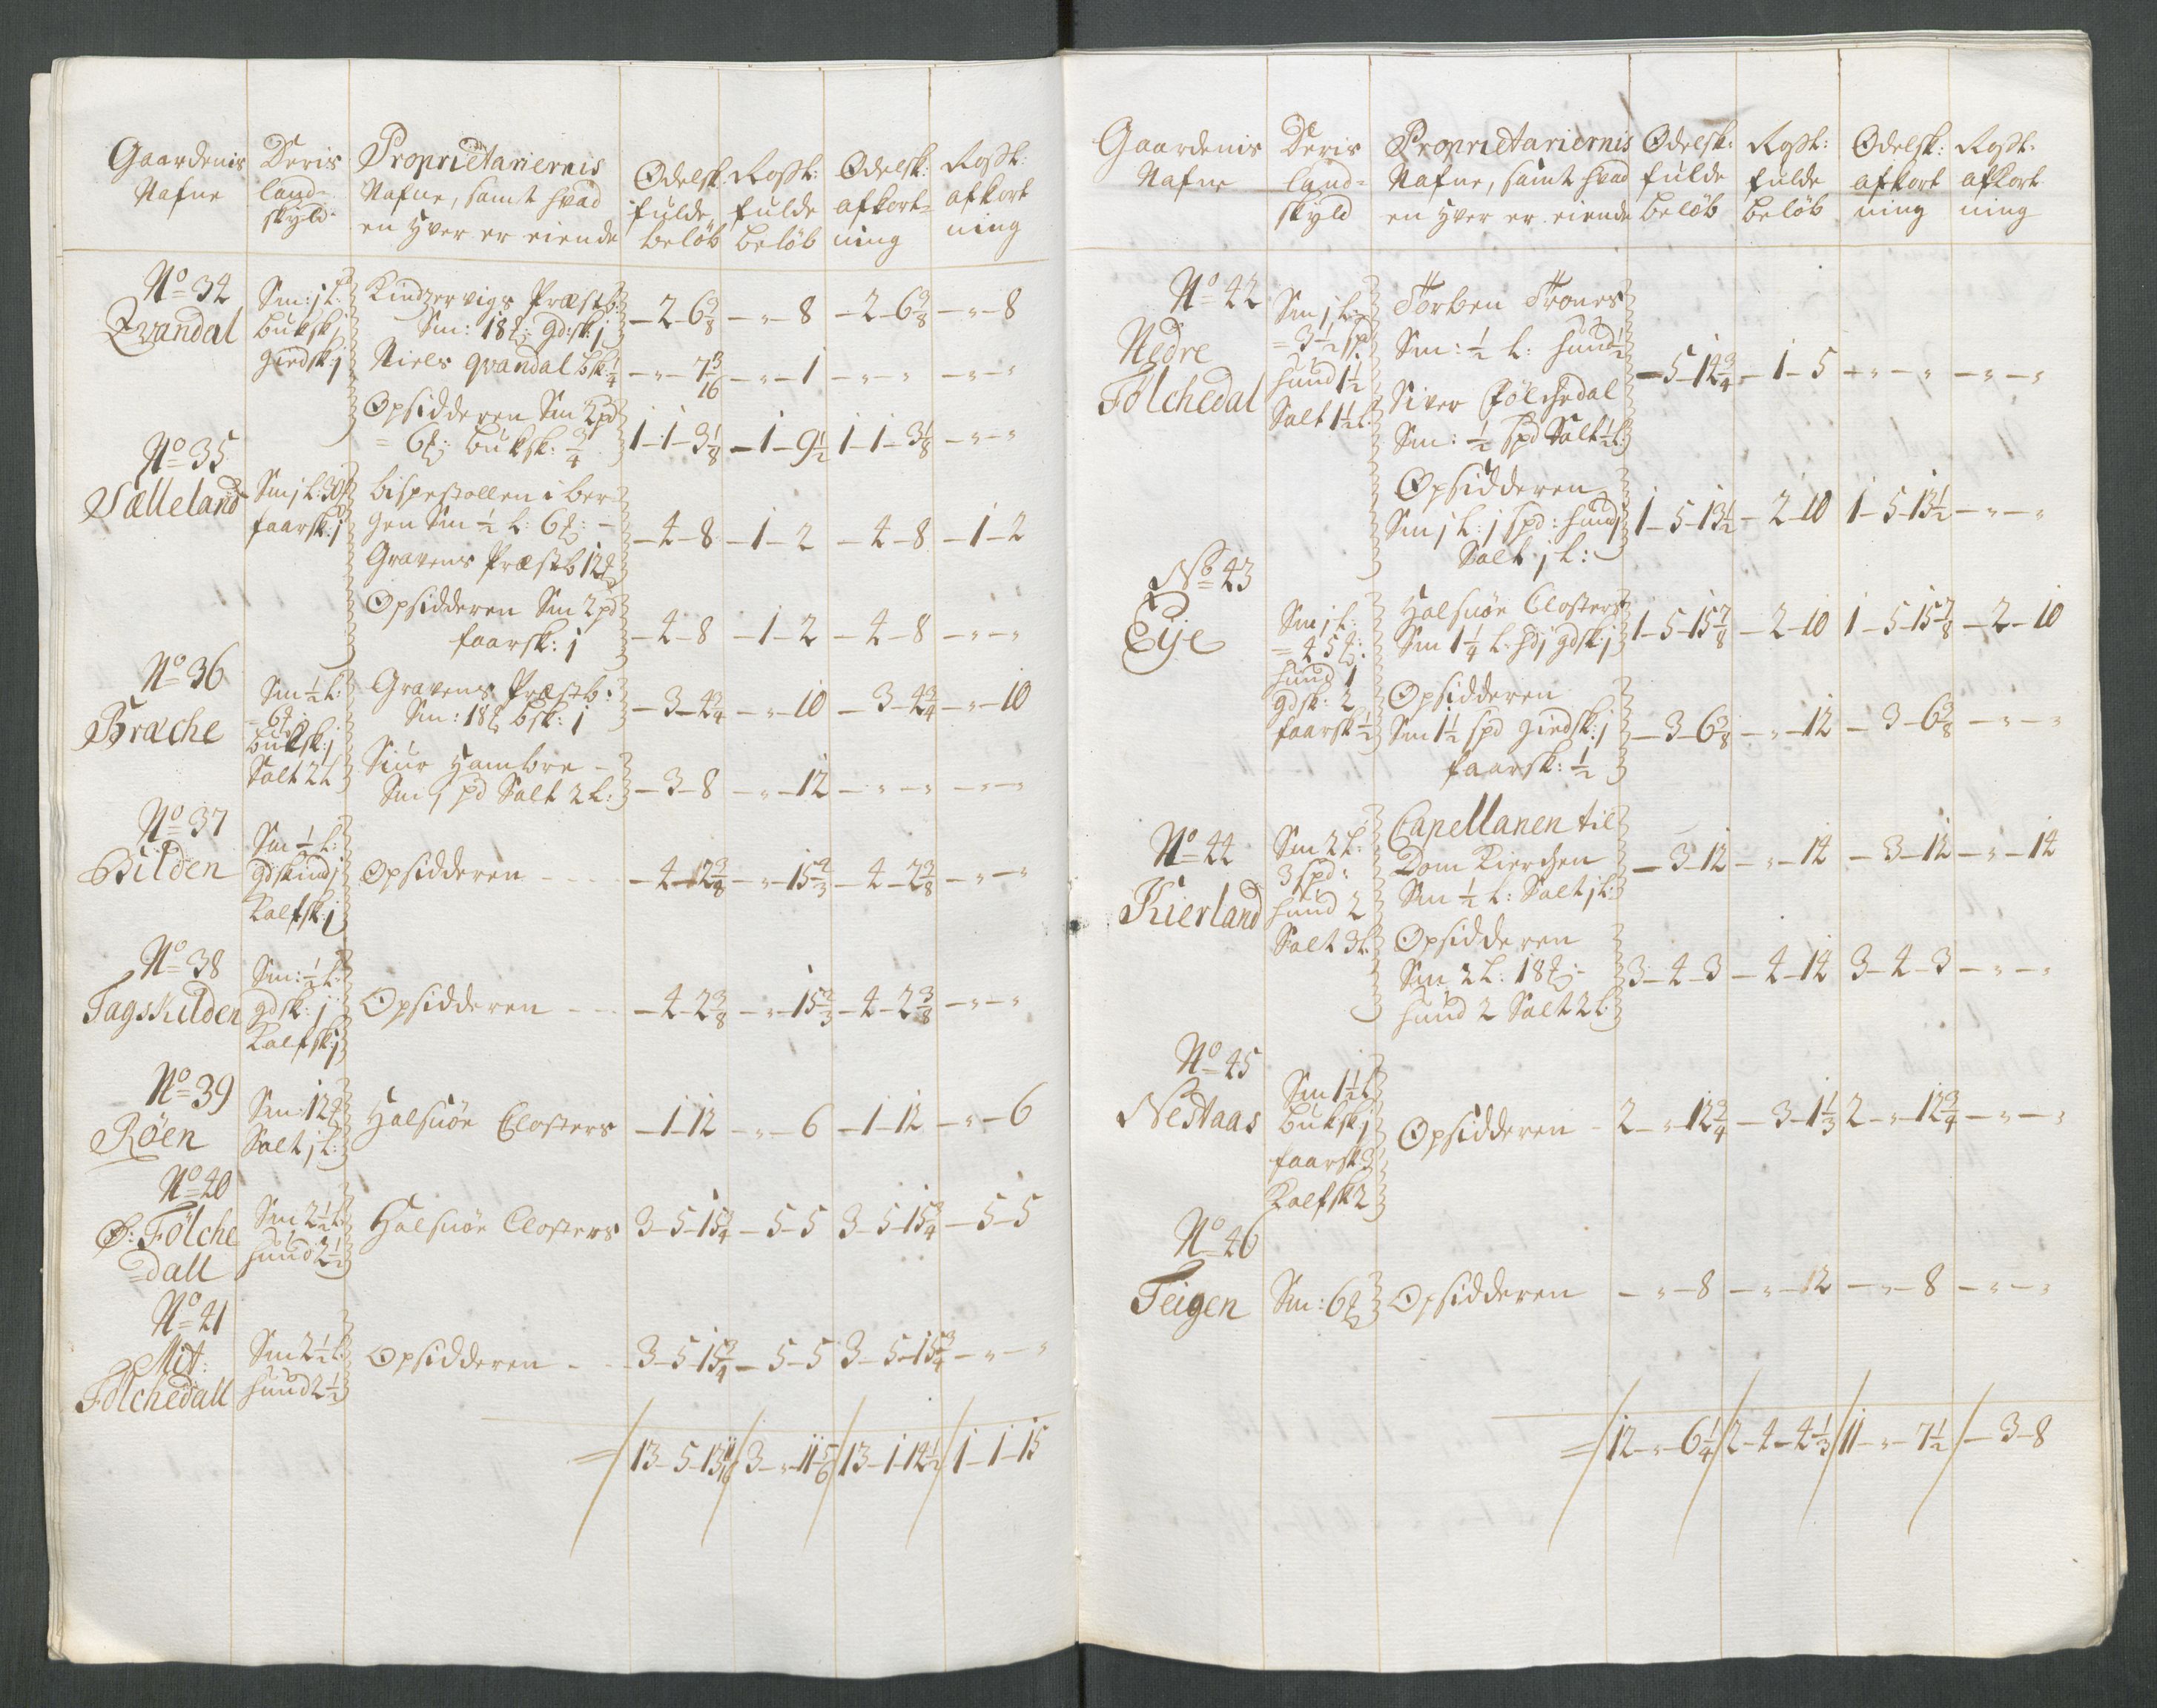 Gaardenis Nafne | Deris land- skyld | Proprietariernis Nafne, samt hvad en hver er eiende | Odelsk: fulde beløb | Rostt: fulde beløb | Odelsk: afkort- ning | Rostt: afkort ning
No 34 Qvandal | Sm: j L: buksk j giedsk: j | Kindzervigs Præstb: Sm: 18 ℔ gd:sk: j | – 2 – 6 3/8 | – „ – 8 | – 2 – 6 3/8 | – „ – 8
Niels qvandal bk: 1/4 | – „ – 7 3/16 | – „ – 1 | – „ – „ | – „ – „
Opsidderen Sm 2 pd = 6 ℔ buksk: 3/4 | 1 – 1 – 3 1/8 | – 1 – 9 1/2 | 1 – 1 – 3 1/8 | – „ – „
No 35 Sælleland | Sm j L: 30 ℔ faarsk: j | bispestollen i ber- gen Sm 1/2 L: 6 ℔: – Gravens Præstb 12 ℔ | – 4 – 8 | – 1 – 2 | – 4 – 8 | – 1 – 2
Opsidderen Sm 2 pd faarsk: j | – 4 – 8 | – 1 – 2 | – 4 – 8 | – „ – „
No 36 Brache | Sm 1/2 L: = 6 ℔: buksk: j Salt 2 L | Gravens Præstb: Sm: 18 ℔ bsk: 1 | – 3 – 4 3/4 | – „ – 10 | – 3 – 4 3/4 | – „ – 10
Siur Hambre – Sm 1 pd Salt 2 L: | – 3 – 8 | – „ – 12 | – „ – „ | – „ – „
No 37 Bilden | Sm 1/2 L: gdskind j Kalfsk: j | Opsidderen | – 4 – 12 3/8 | – „ – 15 2/3 | – 4 – 2 3/8 | – „ – „
No 38 Tagskilden | Sm: 1/2 L: gdsk: j Kalfsk: j | Opsidderen | – 4 – 2 3/8 | – „ – 15 2/3 | – 4 – 2 3/8 | – „ – „
No 39 Röen | Sm: 12 ℔ Salt j L: | Halsnöe Closters | – 1 – 12 | – „ – 6 | – 1 – 12 | – „ – 6
No 40 Ø: Fölche =dall | Sm 2 1/2 L: hund 2 1/2 | Halsnöe Closters | 3 – 5 – 15 3/4 | – 5 – 5 | 3 – 5 – 15 3/4 | – 5 – 5
No 41 Mit: Fölchedall | Sm 2 1/2 L: hund 2 1/2 | Opsidderen | 3 – 5 – 15 3/4 | – 5 – 5 | 3 – 5 – 15 3/4 | – „ – „
= / 13 – 5 – 13 11/16 / 3 – „ – 11 5/6 / 13 – 1 – 14 1/2 / 1 – 1 – 15
Gaardenis Nafne | Deris land= skyld | Proprietariernis Nafne, samt hvad en hver er eiende | Odelsk: fulde beløb | Rostt: fulde beløb | Odelsk: afkort ning | Rostt: afkort ning
No 42 Nedre Fölchedal | Sm j L: = 3 1/2 spd hund 1 1/2 Salt 1 1/2 L | Torben Trones Sm: 1/2 L: hund 1/2 Siver Fölchedal Sm: 1/2 spd Salt 1/2 L: | – 5 – 14 3/4 | – 1 – 5 | – „ – „ | – „ – „
Opsidderen Sm j L: j spd: hund j Salt j L: | 1 – 5 – 13 1/2 | – 2 – 10 | 1 – 5 – 13 1/2 | – „ – „
No 43 Eije | Sm j L: = 45 ℔: hund 1 gdsk: 2 faarsk 1/2 | Halsnöe Closters Sm 1 1/4 L: hd j gdsk j | 1 – 5 – 15 7/8 | – 2 – 10 | 1 – 5 – 15 7/8 | – 2 – 10
Opsidderen Sm 1 1/2 spd giedsk: j faarsk: 1/2 | – 3 – 6 3/8 | – „ – 12 | – 3 – 6 3/8 | – „ – „
No 44 Kierland | Sm 2 L: 3 spd: hund 2 Salt 3 L: | Capellanen til Dom Kierchen Sm 1/2 L: Salt j L: | – 3 – 12 | – „ – 14 | – 3 – 12 | – „ – 14
Opsidderen Sm 2 L: 18 ℔: hund 2 Salt 2 L: | 3 – 4 – 3 | – 4 – 14 | 3 – 4 – 3 | – „ – „
No 45 Nestaas | Sm 1 1/2 L buksk j faarsk: 3 Kalfsk 2 | Opsidderen | 2 – „ – 12 3/4 | – 3 – 1 1/3 | 2 – „ – 12 3/4 | – „ – „
No 46 Teigen | Sm: 6 ℔ | Opsidderen | – „ – 8 | – „ – 12 | – „ – 8 | – „ – „
= / 12 – „ – 6 1/4 / 2 – 4 – 4 1/3 / 11 – „ – 7 1/2 / – 3 – 8